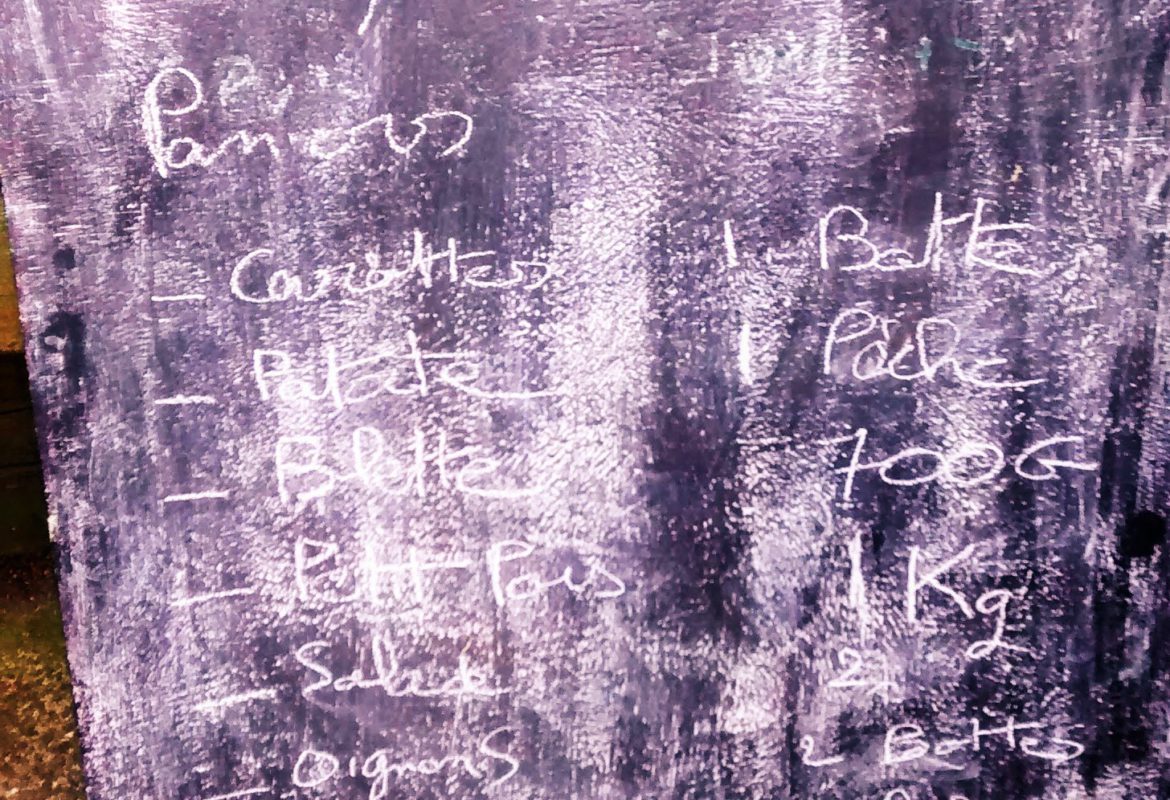 Paniers
- Carottes 1 Botte
- Patate 1 Poche
- Blette 700G
- Petit Pois 1 Kg
- Salade 2
- Oignons 2 Bottes